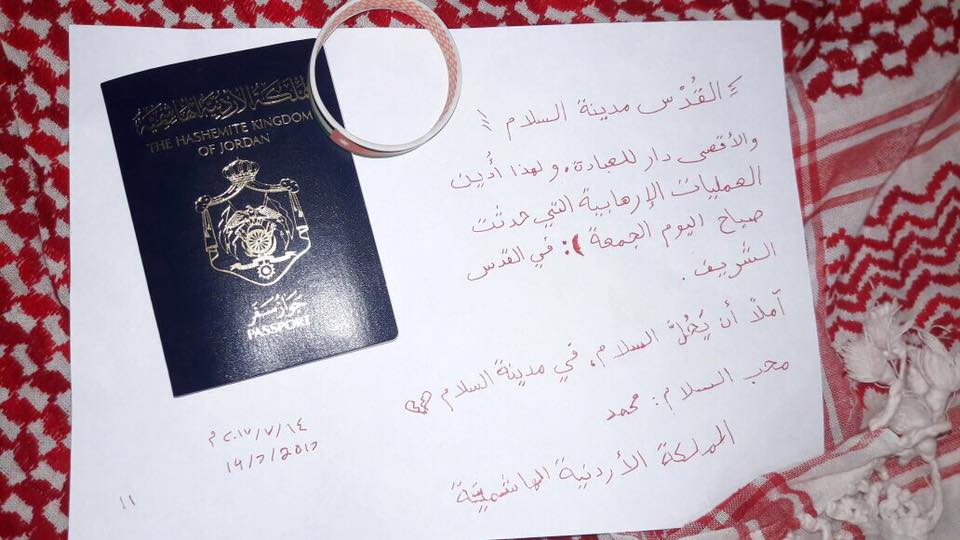 المملكة الأردنية الهاشمية
THE HASHEMITE KINGDOM
OF JORDAN
جواز سفر
PASSPORT
القُدْس مدينة السلام
والأقصى دار للعبادة، ولهذا أُدين
العمليات الإرهابية التي حدثت
صباح اليوم الجمعة ): في القدس
الشريف.
آملاً أن يَحُلَّ السلام، في مدينة السلام
محب السلام: محمد
المملكة الأردنية الهاشميَّة
٢٠١٧/٧/١٤ م
14/7/2017